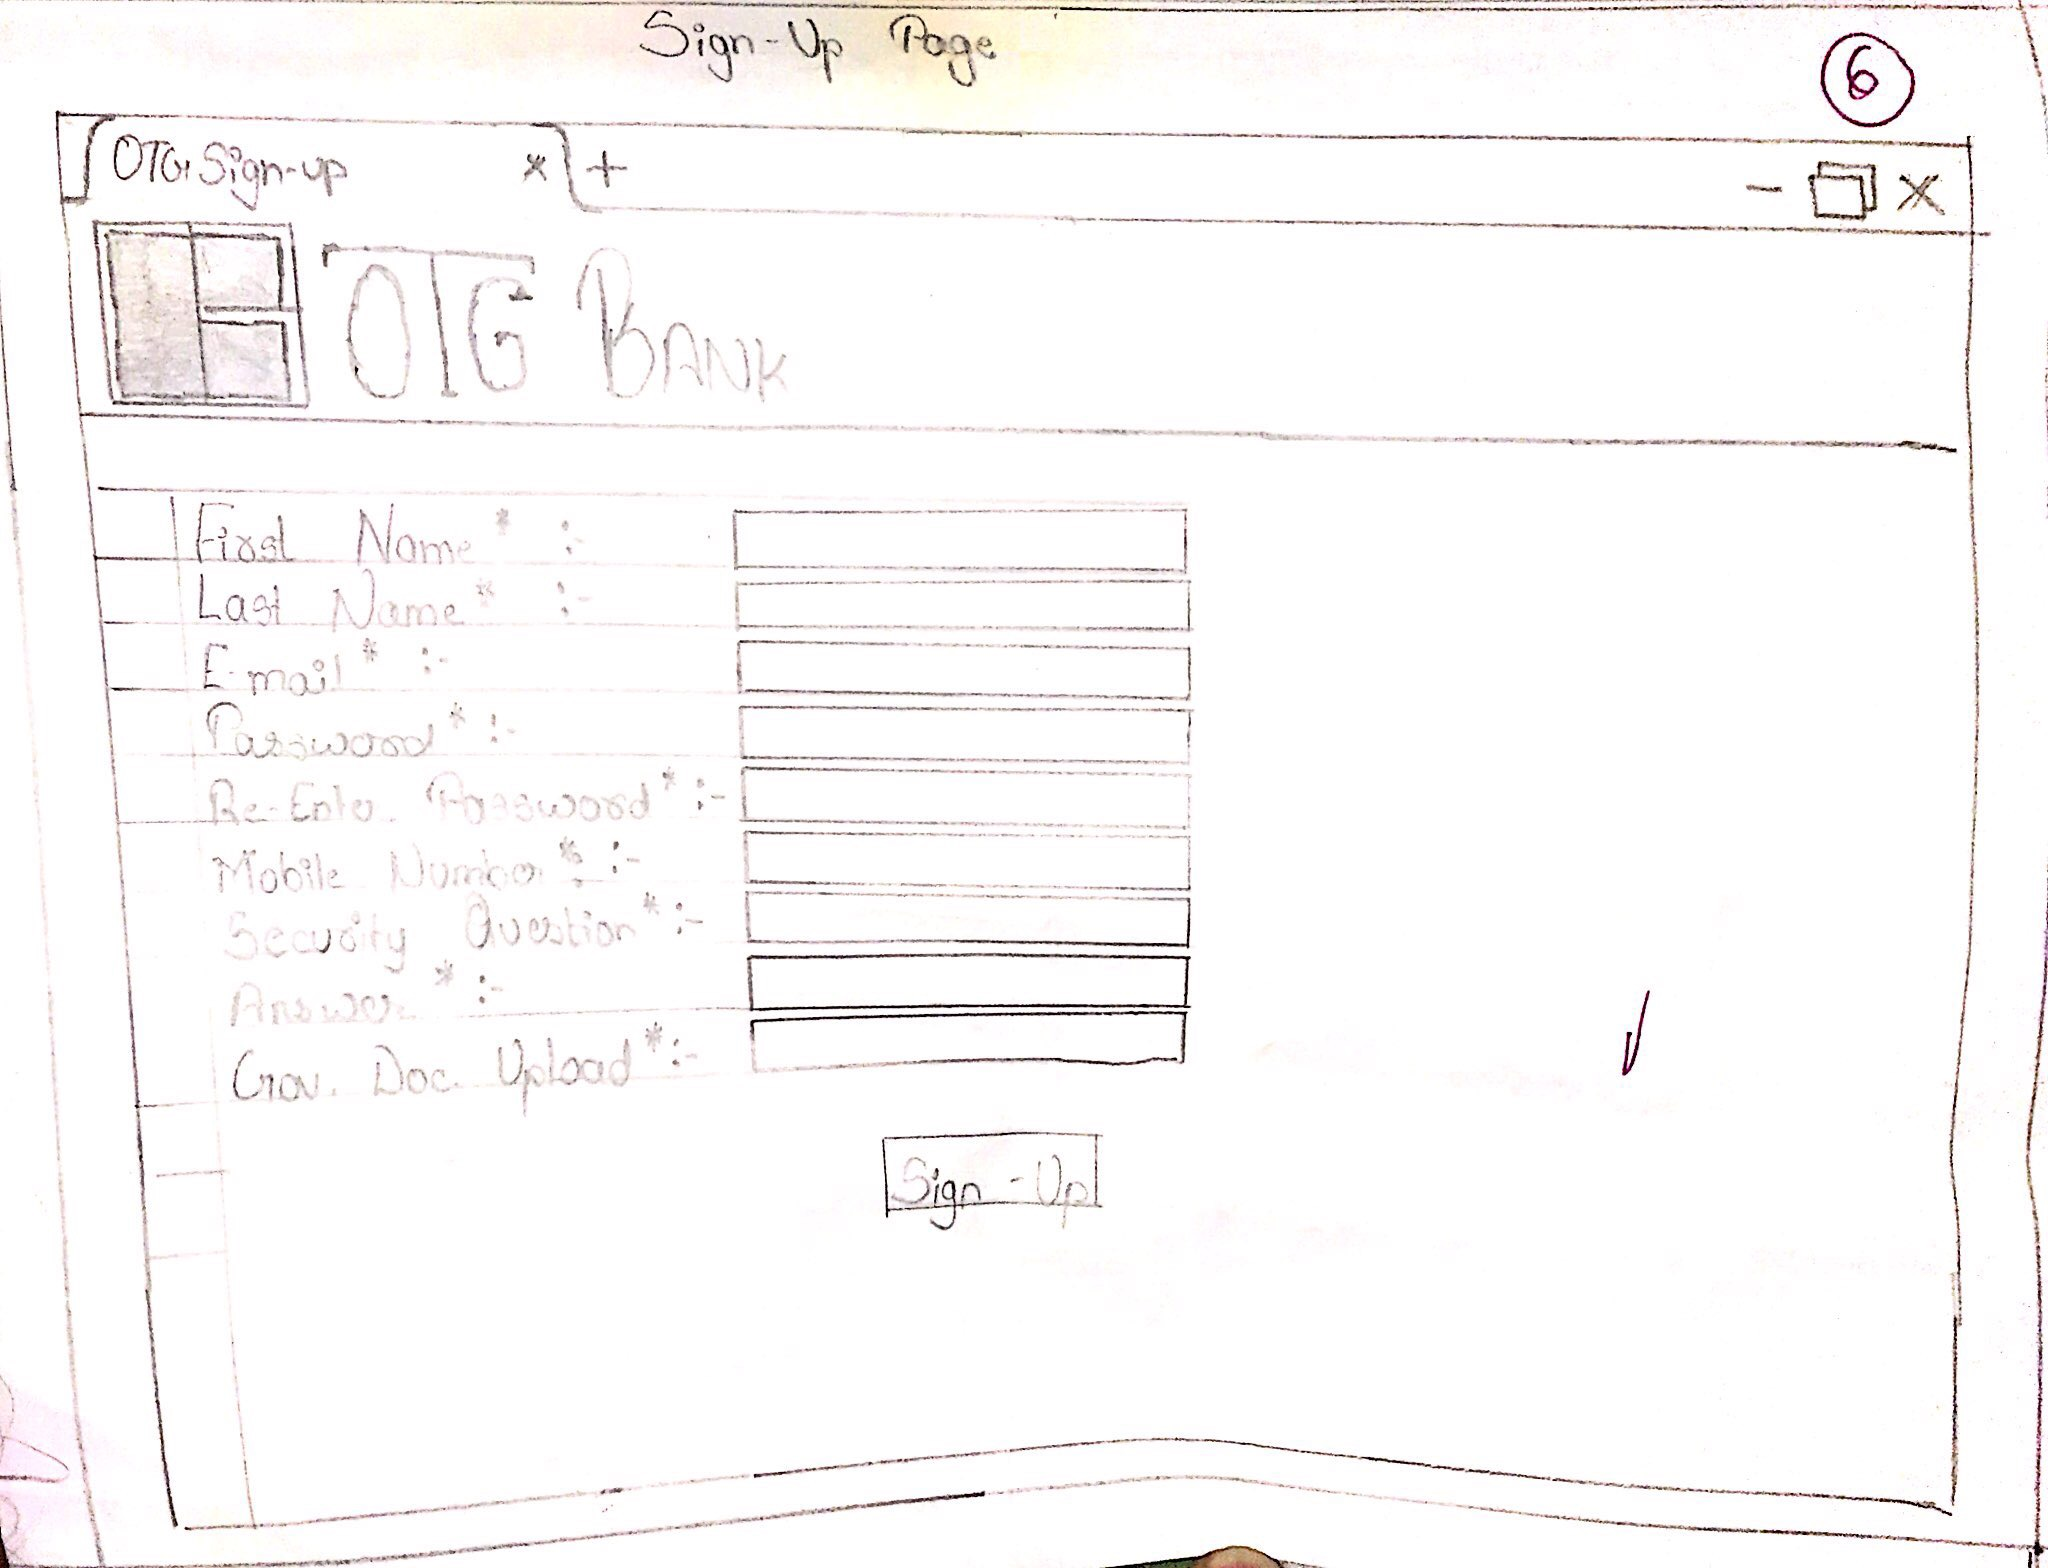 Sign-Up Page
6
OTG Sign-up × +
- X
OTG BANK
First Name * :-
Last Name * :-
E-mail * :-
Password * :-
Re-Enter Password * :-
Mobile Number * :-
Security Question * :-
Answer * :-
Gov. Doc. Upload * :-
Sign-Up